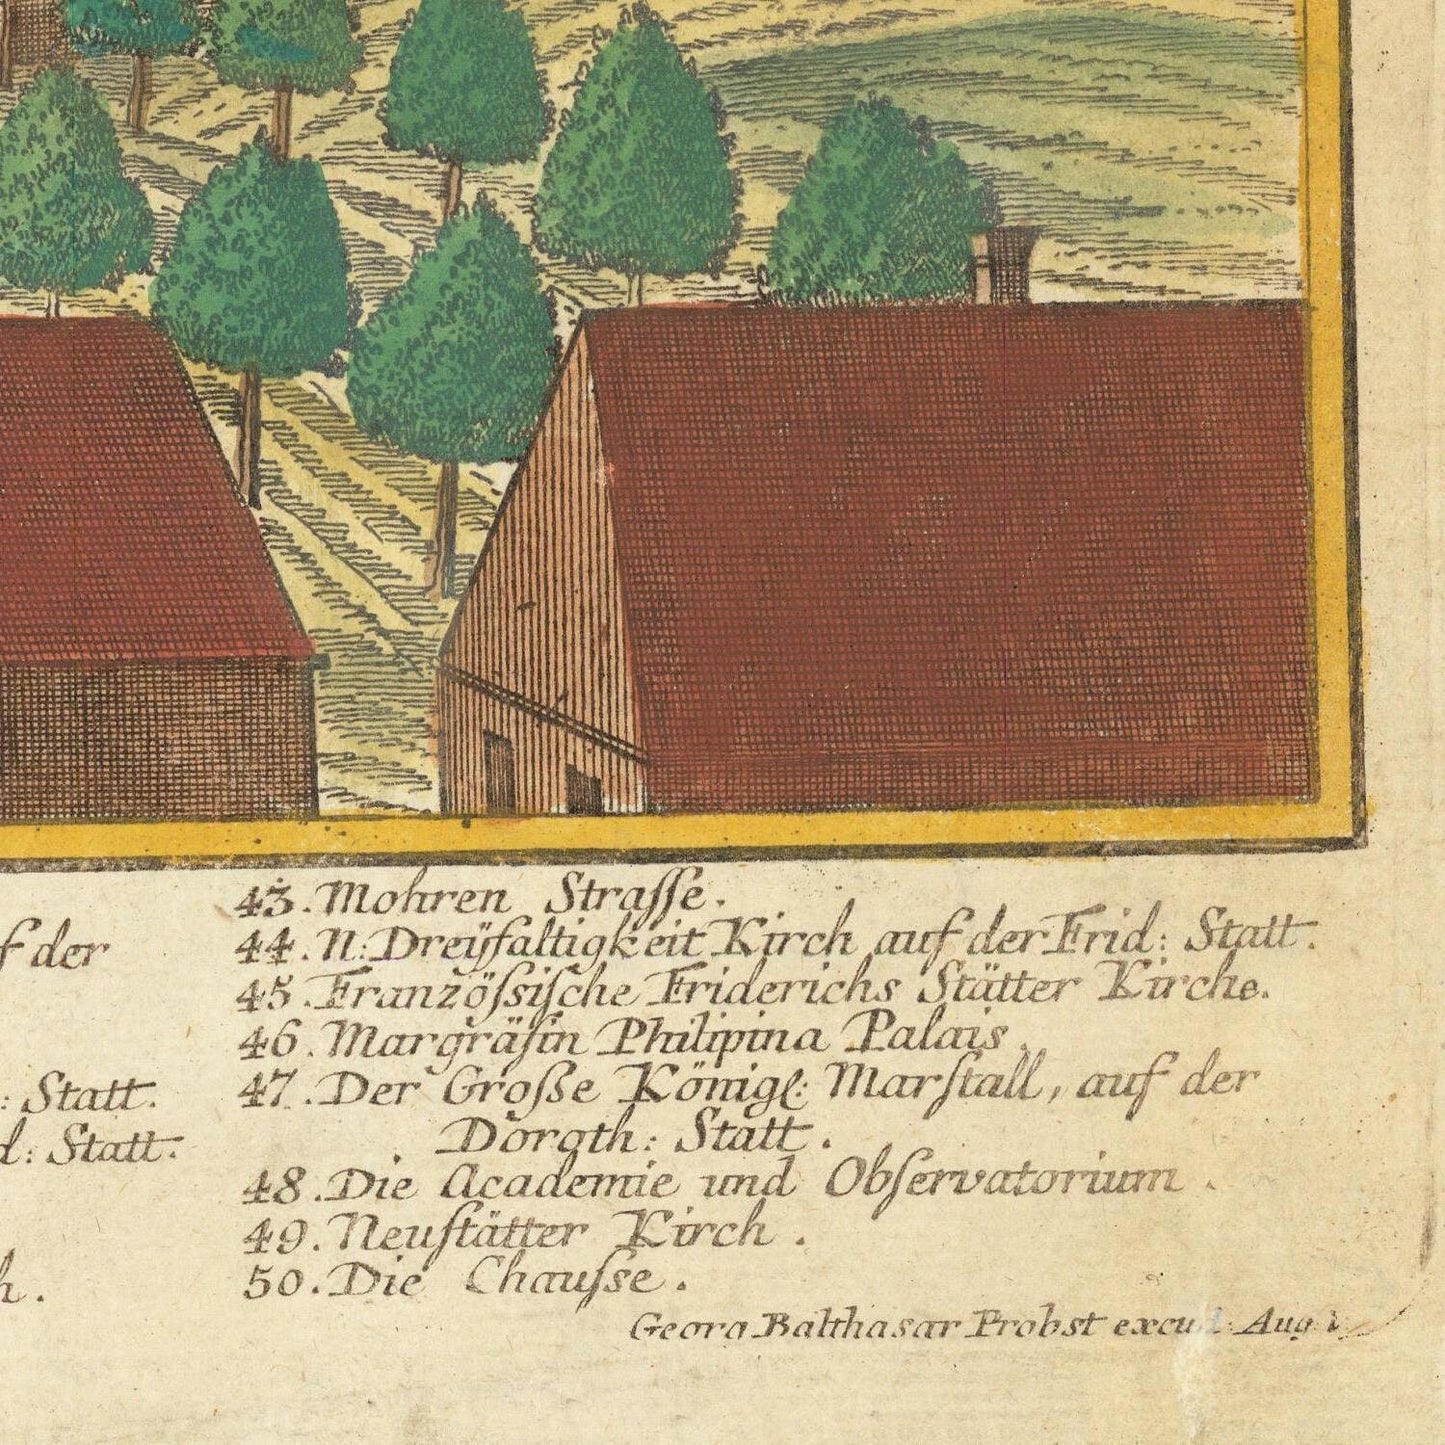 f der
: Statt.
d: Statt.
h.
43. Mohren Straſſe.
44. N: Dreÿfaltigkeit Kirch auf der Frid: Statt.
45. Franzöſsiſche Friderichs Stätter Kirche.
46. Margräfin Philipina Palais.
47. Der Große Königl: Marſtall, auf der
Doroth: Statt.
48. Die Academie und Obſervatorium.
49. Neuſtätter Kirch.
50. Die Chauſse.
Georg Balthasar Probst excud. Aug. V.